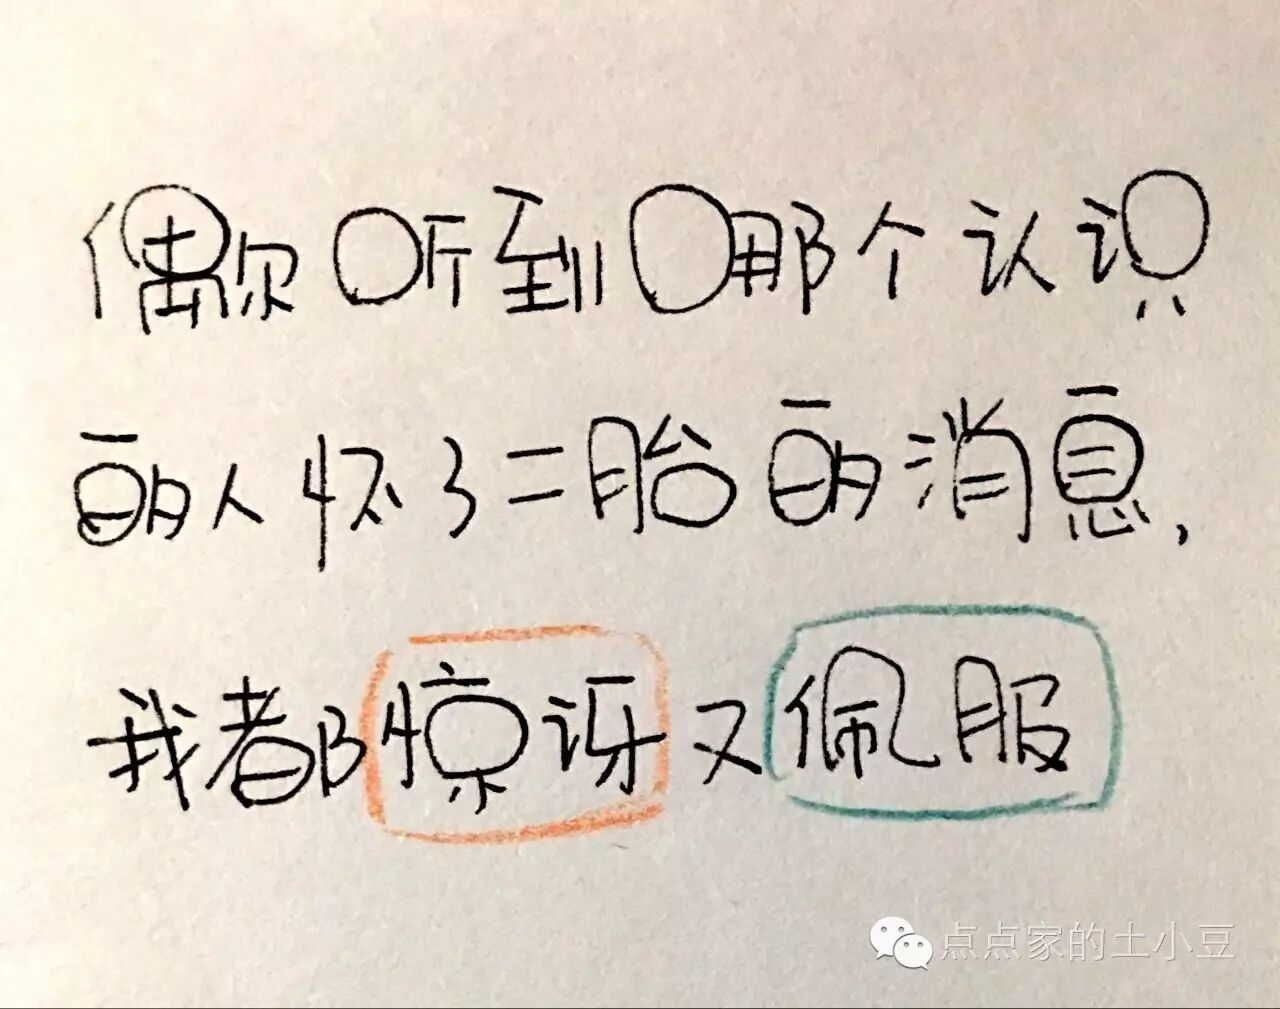 偶尔听到哪个认识
的人怀了二胎的消息,
我都惊讶又佩服
点点家的土小豆